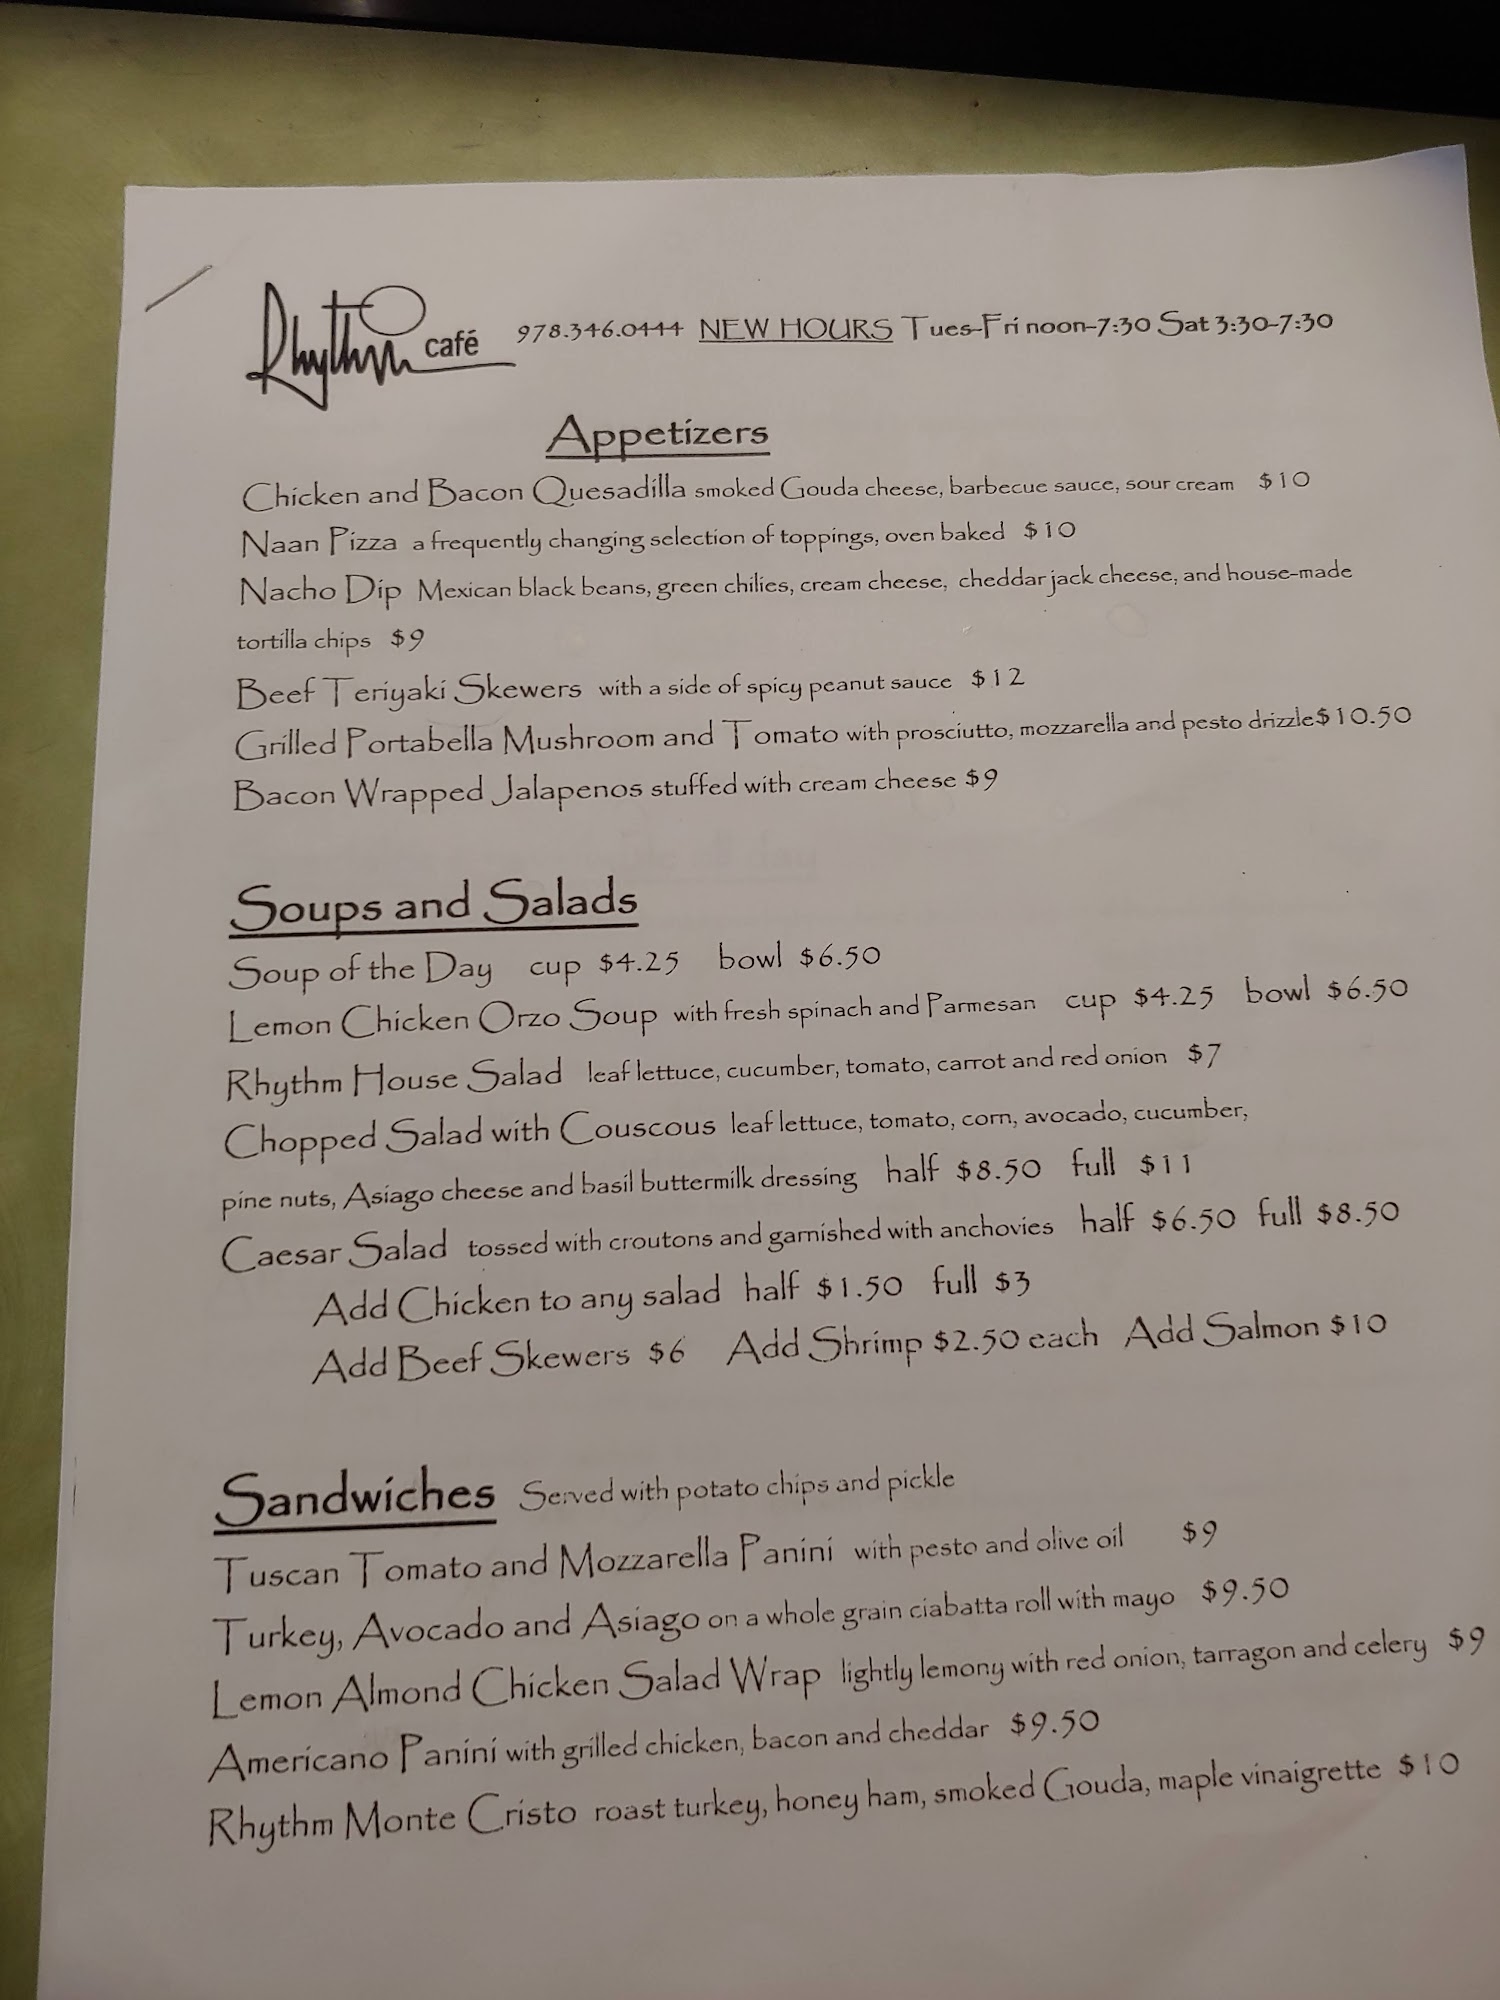 Rhythm café 978.346.0444 NEW HOURS Tues-Fri noon-7:30 Sat 3:30-7:30
Appetizers
Chicken and Bacon Quesadilla smoked Gouda cheese, barbecue sauce, sour cream $10
Naan Pizza a frequently changing selection of toppings, oven baked $10
Nacho Dip Mexican black beans, green chilies, cream cheese, cheddar jack cheese, and house-made
tortilla chips $9
Beef Teriyaki Skewers with a side of spicy peanut sauce $12
Grilled Portabella Mushroom and Tomato with prosciutto, mozzarella and pesto drizzle$10.50
Bacon Wrapped Jalapenos stuffed with cream cheese $9
Soups and Salads
Soup of the Day cup $4.25 bowl $6.50
Lemon Chicken Orzo Soup with fresh spinach and Parmesan cup $4.25 bowl $6.50
Rhythm House Salad leaf lettuce, cucumber, tomato, carrot and red onion $7
Chopped Salad with Couscous leaf lettuce, tomato, corn, avocado, cucumber,
pine nuts, Asiago cheese and basil buttermilk dressing half $8.50 full $11
Caesar Salad tossed with croutons and garnished with anchovies half $6.50 full $8.50
Add Chicken to any salad half $1.50 full $3
Add Beef Skewers $6 Add Shrimp $2.50 each Add Salmon $10
Sandwiches Served with potato chips and pickle
Tuscan Tomato and Mozzarella Panini with pesto and olive oil $9
Turkey, Avocado and Asiago on a whole grain ciabatta roll with mayo $9.50
Lemon Almond Chicken Salad Wrap lightly lemony with red onion, tarragon and celery $9
Americano Panini with grilled chicken, bacon and cheddar $9.50
Rhythm Monte Cristo roast turkey, honey ham, smoked Gouda, maple vinaigrette $10